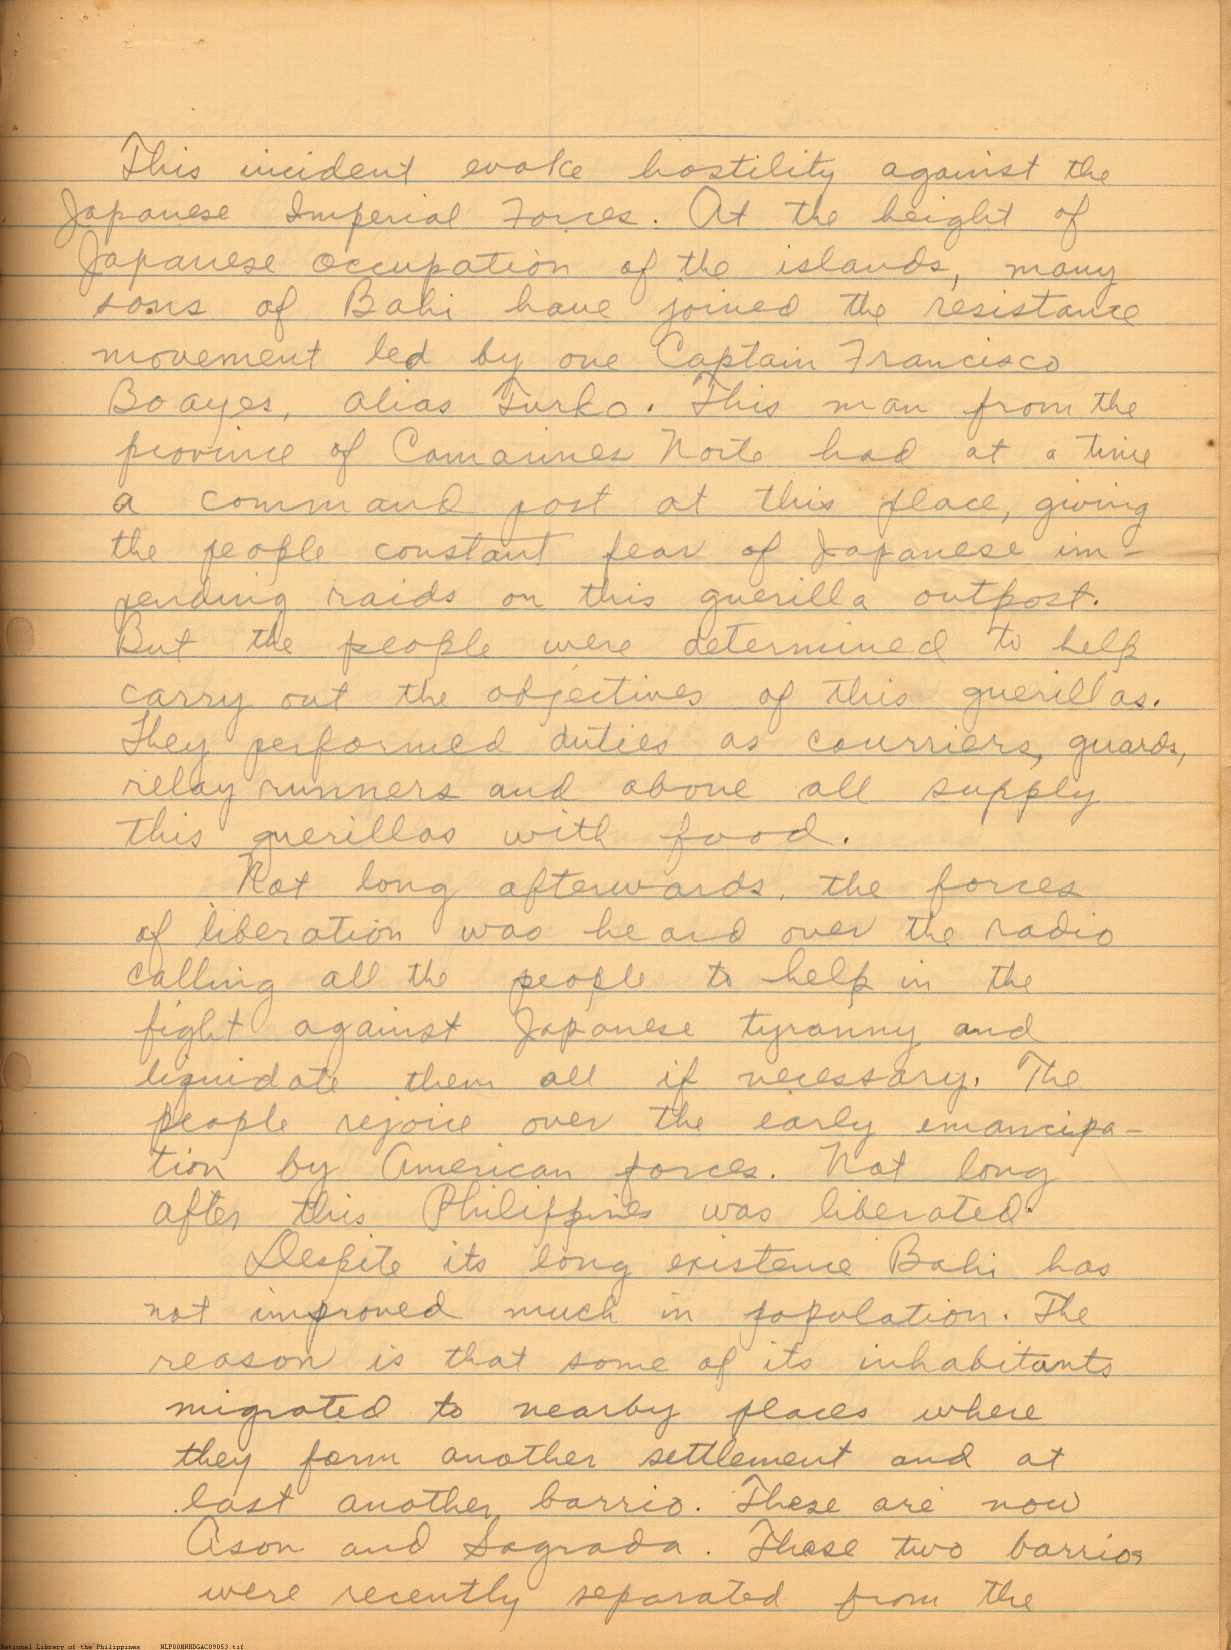 This incident evoke hostility against the
Japanese Imperial Forces. At the height of
Japanese occupation of the islands, many
sons of Bahi have joined the resistance
movement led by one Captain Francisco
Boayes, alias Turko. This man from the
province of Camarines Norte had at a time
a command post at this place, giving
the people constant fear of Japanese im-
pending raids on this guerilla outpost.
But the people were determined to help
carry out the objectives of this guerillas.
They performed duties as courriers, guards,
relay runners and above all supply
this guerillas with food.
Not long afterwards, the forces
of liberation was heard over the radio
calling all the people to help in the
fight against Japanese tyranny and
liquidate them all if necessary. The
people rejoice over the early emancipa-
tion by American forces. Not long
after this Philippines was liberated.
Despite its long existence Bahi has
not improved much in population. The
reason is that some of its inhabitants
migrated to nearby places where
they form another settlement and at
last another barrio. These are now
Ason and Sagrada. These two barrios
were recently separated from the
National Library of the Philippines NLP00MNHDGAC09053.tif